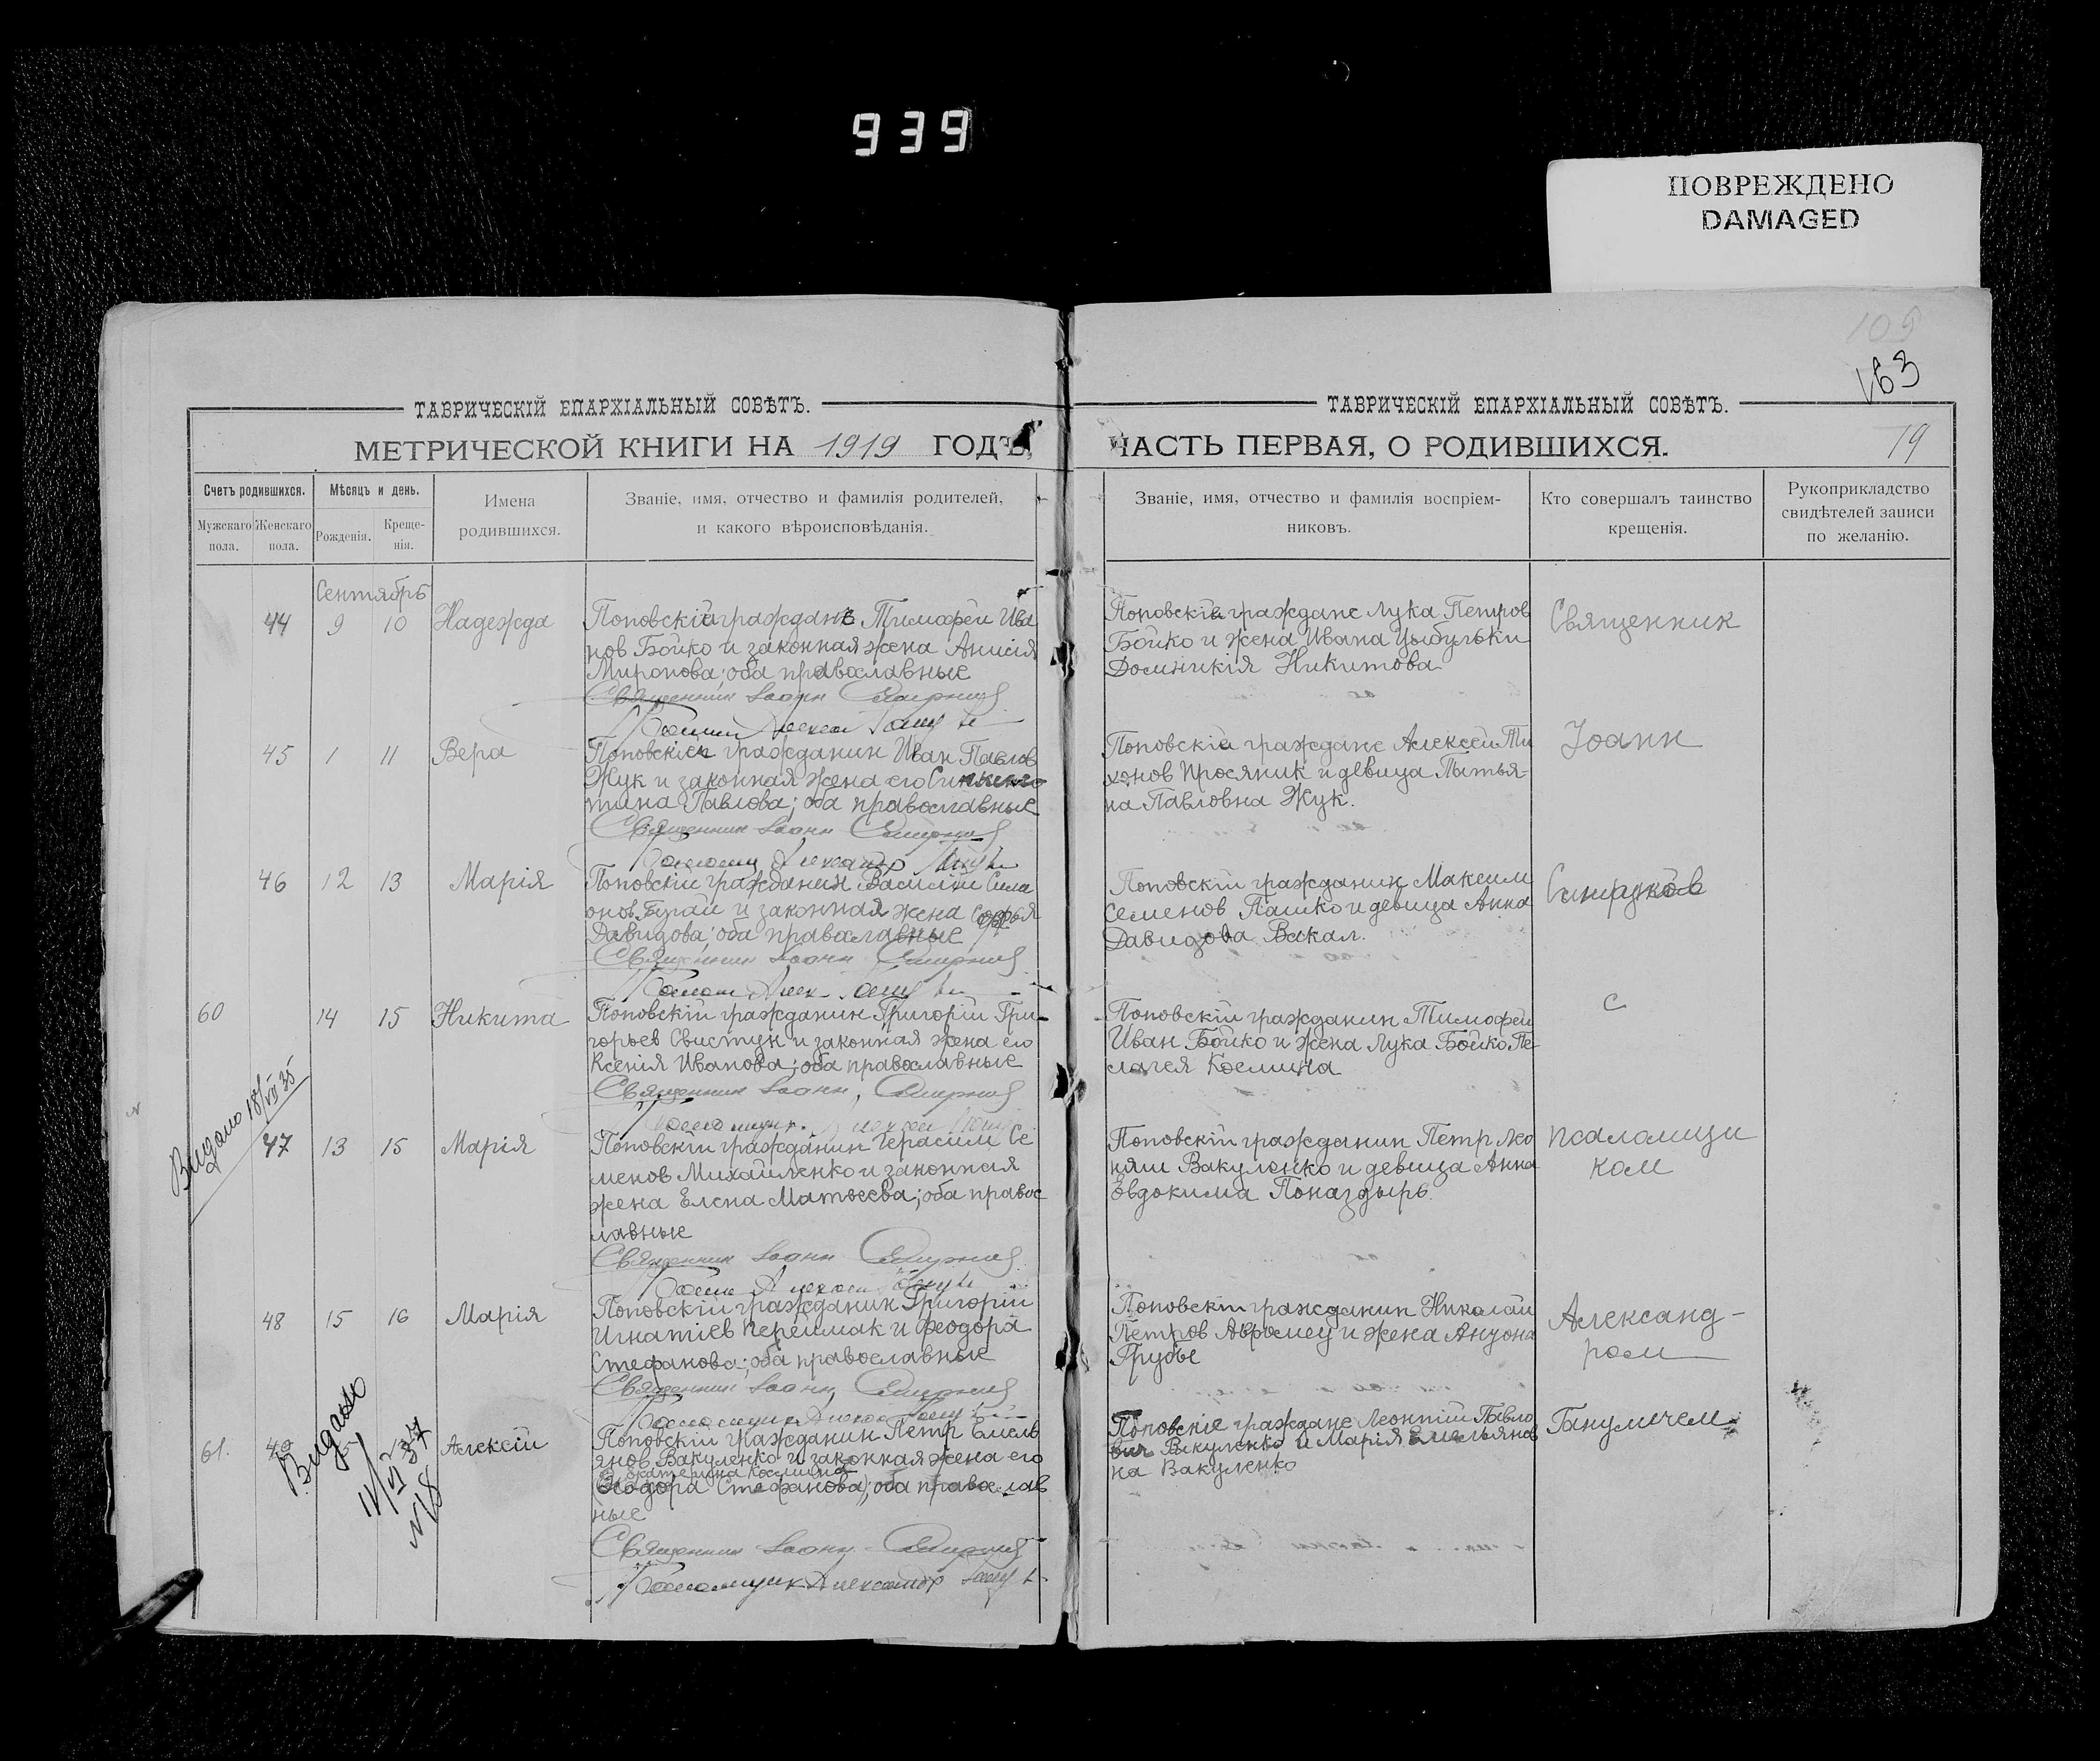 939
ПОВРЕЖДЕНО
DAMAGED
105
163
ТАВРИЧЕСКІЙ ЕПАРХІАЛЬНЫЙ СОВѢТЪ.
МЕТРИЧЕСКОЙ КНИГИ НА 1919 ГОДЪ,
Счетъ родившихся.
Мужскаго пола.
Женскаго пола.
Мѣсяцъ и день.
Рожденія.
Креще-
нія.
Имена
родившихся.
Званіе, имя, отчество и фамилія родителей,
и какого вѣроисповѣданія.
Сентябрь
44 9 10 Надежда
Поповскіе граждане Тимофей Ива
нов Бойко и законная жена Анисія
Миронова; оба православные
Священник Іоанн
45 1 11 Вера
Поповскій гражданин Иван Павлов
Жук и законная жена его
Павлова; оба православные
Священник Іоанн
Александр
46 12 13 Марія
Поповскій гражданин Василій Сим
онов Бугай и законная жена Софья
Давидова; оба православные
Священник Іоанн
60 14 15 Никита
Поповскій гражданин Григорій Гри-
горьев Свистун и законная жена его
Ксенія Иванова; оба православные
Священник Іоанн
Видано 18/VII 35
47 13 15 Марія
Поповскій гражданин Герасим Се
менов Михайленко и законная
жена Елена Матвеева; оба правос
лавные
Священник Іоанн
48 15 16 Марія
Поповскій гражданин Григорій
Игнатіев Перехмак и Феодора
Стефанова; оба православные
Священник Іоанн
61. 49 Алексій
Видано
11/VI 37
N18
Поповскій гражданин Петр Емель
янов Вакуленко и законная жена его
Екатерина Косьмина
(Феодора Стефанова); оба православ
ные
Священник Іоанн
Псаломщик Александр
ТАВРИЧЕСКІЙ ЕПАРХІАЛЬНЫЙ СОВѢТЪ.
ЧАСТЬ ПЕРВАЯ, О РОДИВШИХСЯ.
19
Званіе, имя, отчество и фамилія воспріем-
никовъ.
Кто совершалъ таинство
крещенія.
Рукоприкладство
свидѣтелей записи
по желанію.
Поповскіе граждане Лука Петров
Бойко и жена Ивана Цыбульки
Доминикія Никитова
Поповскіе граждане Алексей Ти
хонов Просяник и девица Татья-
на Павловна Жук.
Поповскій гражданин Максим
Семенов Пашко и девица Анна
Давидова Вакал.
Поповскій гражданин Тимофей
Иван Бойко и жена Лука Бойко Пе-
лагея Косьмина
Поповскій гражданин Петр Лео
Вакуленко и девица Анна
Евдокима Поназдырь.
Поповскій гражданин Николай
Петров Аврамец и жена
Грубье
Поповскіе граждане Леонтій Павло
вич Вакуленко и Марія Емельянов
на Вакуленко
Священник
Іоанн
Смирнов
с
псаломщи
ком
Александ-
ром